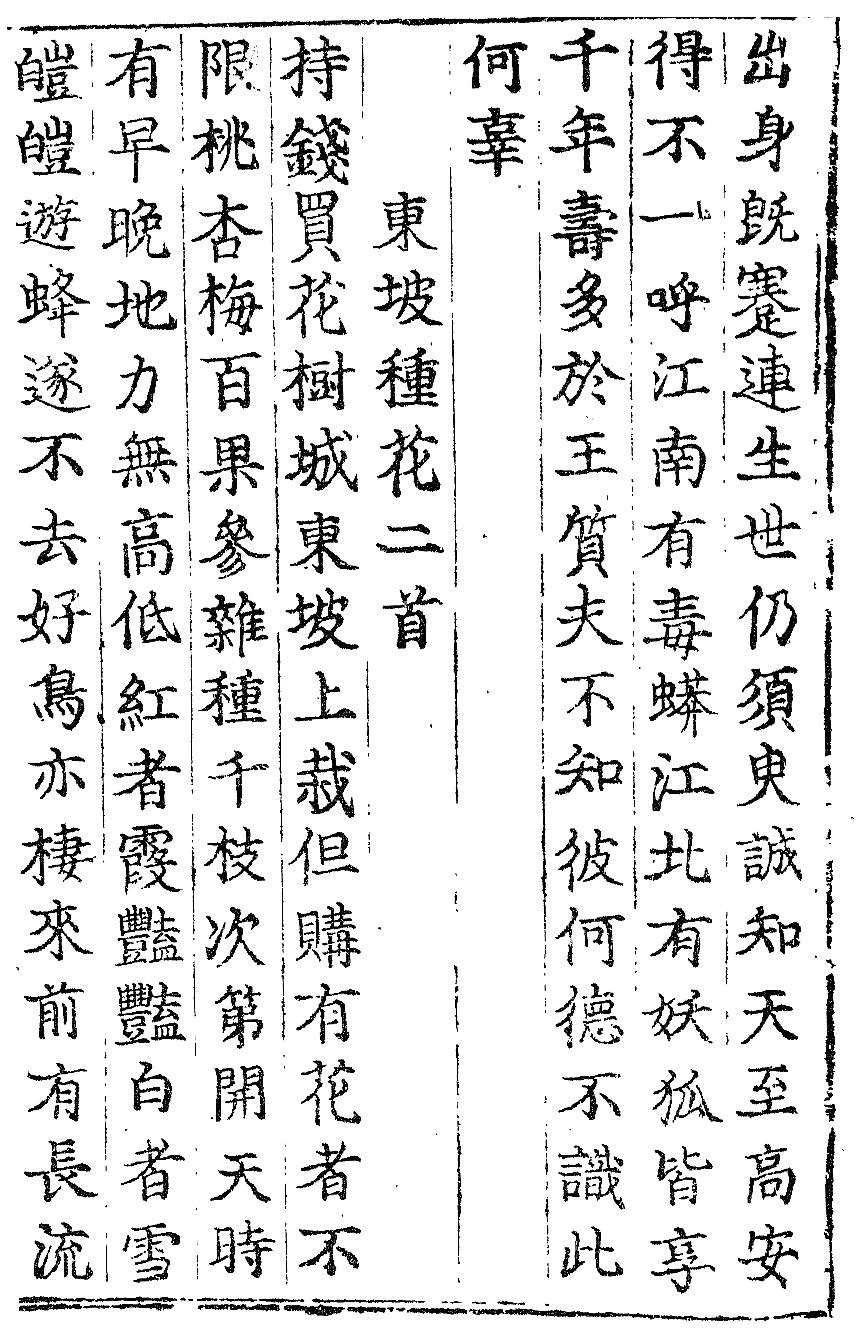 出身旣蹇連生世仍須臾誠知天至高安
得不一呼江南有毒蟒江北有妖狐皆享
千年壽多於王質夫不知彼何德不識此
何辜
東坡種花二首
持錢買花樹城東坡上栽但購有花者不
限桃杏梅百果參雜種千枝次第開天時
有早晚地力無高低紅者霞豔豔白者雪
皚皚遊蜂遂不去好鳥亦棲來前有長流